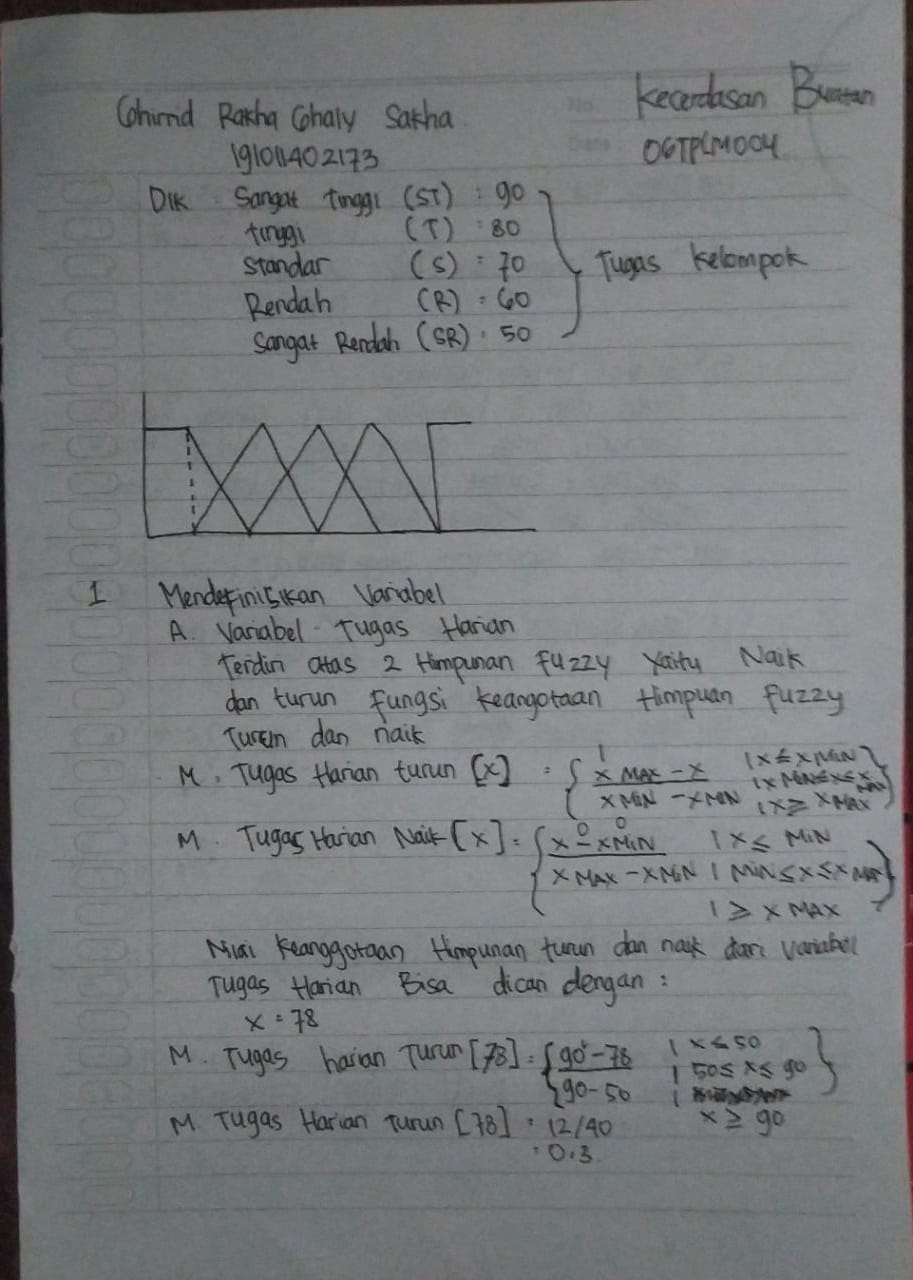 Ghirrid Rakha Ghaly Sakha
Kecerdasan Buatan
191011402173
06TPLM004
Dik Sangat tinggi (ST) : 90
tinggi (T) : 80
Standar (S) : 70
Tugas Kelompok
Rendah (R) : 60
Sangat Rendah (SR) : 50
I Mendefinisikan Variabel
A. Variabel Tugas Harian
Terdiri atas 2 Himpunan Fuzzy Yaitu Naik
dan turun Fungsi Keangotaan Himpuan Fuzzy
Turun dan naik
M. Tugas Harian turun [x] = { 1 | x ≤ x MIN
x MAX - x | x MIN ≤ x ≤ x MAX
x MIN - x MIN | x ≥ x MAX }
M. Tugas Harian Naik [x] = { 0 0
x - x MIN | x ≤ MIN
x MAX - x MIN | MIN ≤ x ≤ x MAX
| ≥ x MAX }
Nilai Keanggotaan Himpunan turun dan naik dari variabel
Tugas Harian Bisa dicari dengan :
x = 78
M. Tugas harian Turun [78] = { 90 - 78 | x ≤ 50
90 - 50 | 50 ≤ x ≤ 90 }
x ≥ 90
M. Tugas Harian Turun [78] : 12/40
: 0.3